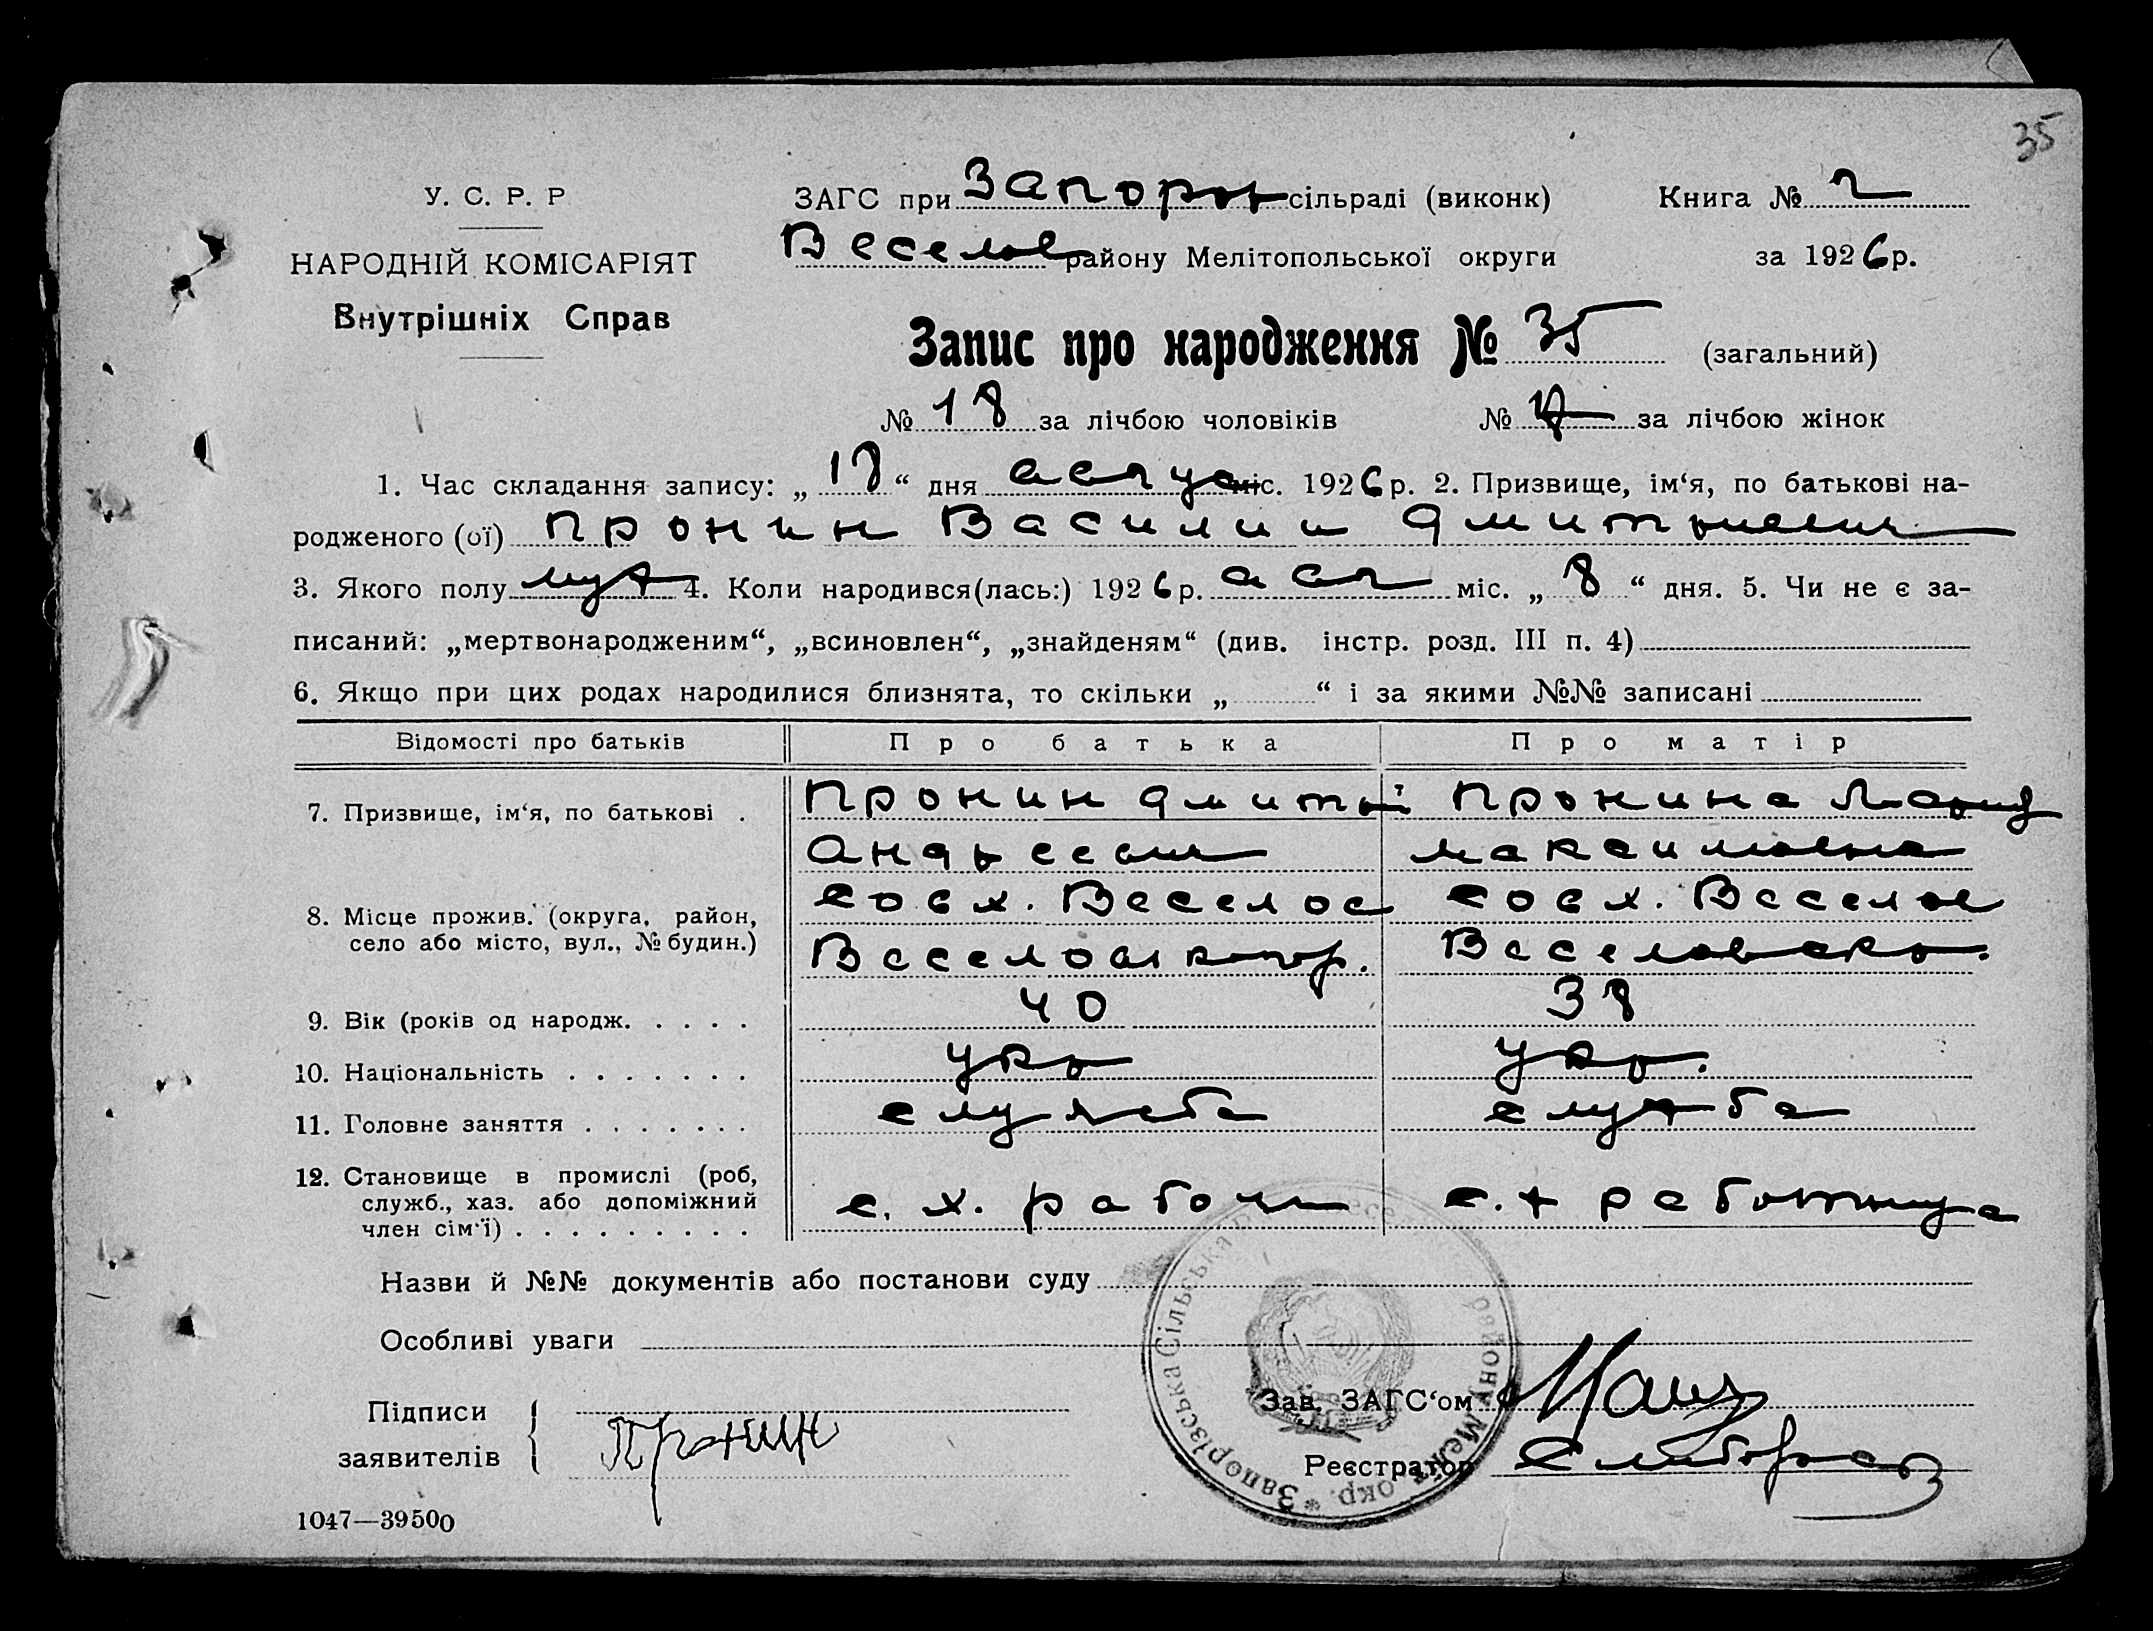 35
У. С. Р. Р
НАРОДНІЙ КОМІСАРІЯТ
Внутрішніх Справ
ЗАГС при Запорож сільраді (виконк)
Веселов району Мелітопольської округи
Книга № 2
за 1926 р.
Запис про народження № 35 (загальний)
№ 18 за лічбою чоловіків № за лічбою жінок
1. Час складання запису: „ 18 “ дня августа міс. 1926 р. 2. Призвище, ім‘я, по батькові на-
родженого (ої) Пронин Василий Дмитриевич
3. Якого полу муж 4. Коли народився(лась:) 1926 р. авг міс. „ 8 “ дня. 5. Чи не є за-
писаний: „мертвонародженим“, „всиновлен“, „знайденям“ (див. інстр. розд. III п. 4)
6. Якщо при цих родах народилися близнята, то скільки „ “ і за якими №№ записані
Відомості про батьків Про батька Про матір
7. Призвище, ім‘я, по батькові . Пронин Дмитрий Пронина Мария
Андреевич Максимовна
8. Місце прожив. (округа, район, совх. Веселое совх. Веселое
село або місто, вул., № будин.) Веселовск Веселовско.
9. Вік (років од народж. . . . . 40 38
10. Національність . . . . . . . укр укр.
11. Головне заняття . . . . . . . служба служба
12. Становище в промислі (роб,
служб., хаз. або допоміжний с. х. рабоч с. х работница
член сім‘ї) . . . . . . . . .
Назви й №№ документів або постанови суду
Особливі уваги
Підписи
заявителів Пронин
Зав. ЗАГС‘ом
Реєстратор
Запорізька Сільська району Меліт. окр.
1047—39500